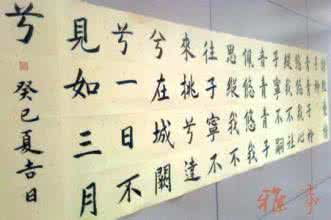 悠悠我心
縱我不往
子寧不嗣
音青青子
佩悠悠我
思縱我不
往子寧不
來挑兮達
兮在城闕
兮一日不
見如三月
兮
癸巳夏吉日